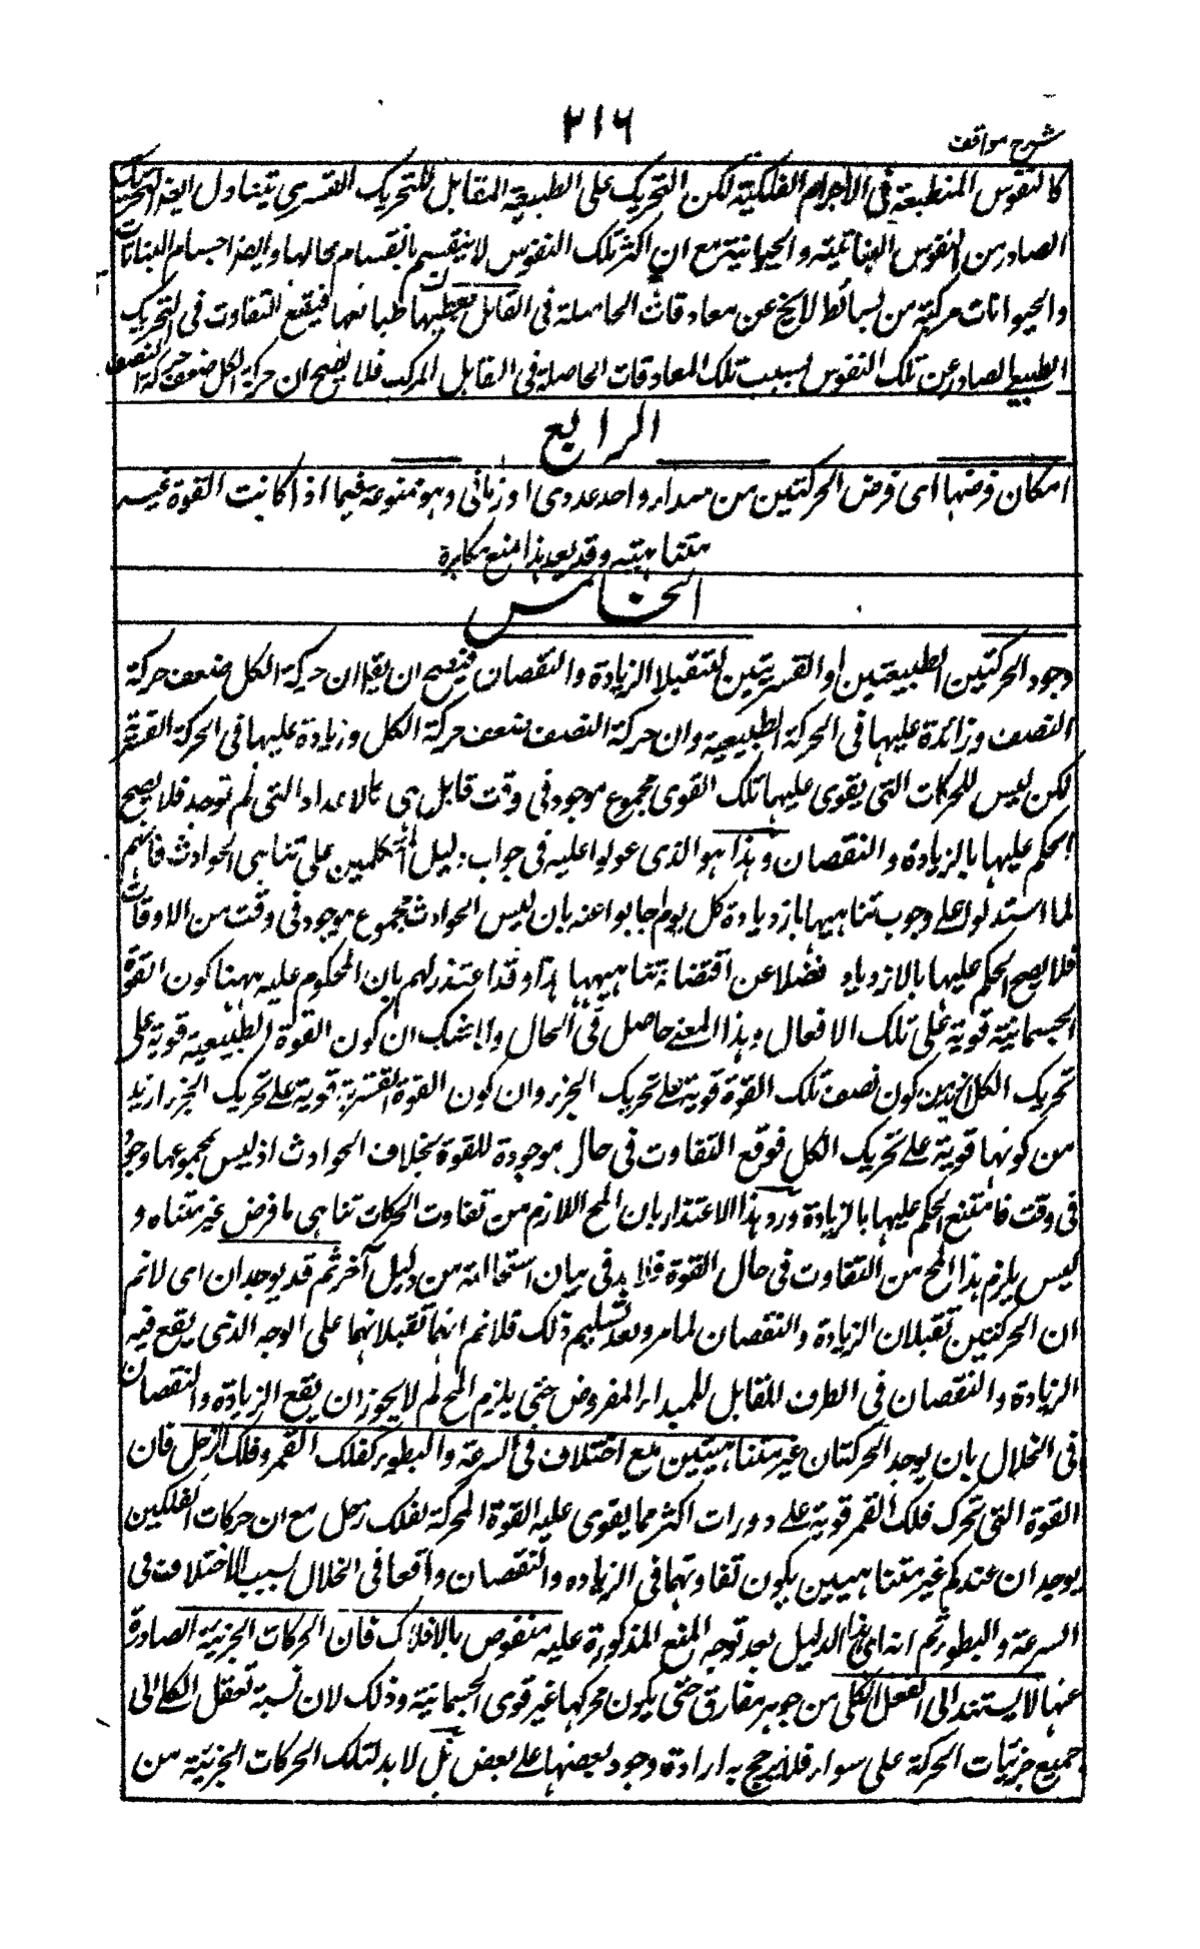 شرح مواقف
٢١٦
كالنفوس المنطبعة فى الاجرام الفلكية لكن التحريك على الطبيعة المقابل للتحريك القسرى يتناول ايضا التحريك
الصادر من النفوس النباتية والحيوانية مع ان اكثر تلك النفوس لا ينقسم بانقسام محالها وايضا اجسام النباتات
والحيوانات مركبة من بسائط لا يخ عن معاوقات الحاصلة فى القابل تعطيها طبائعها فيقع التفاوت فى التحريك
الطبيعى الصادر عن تلك النفوس بسبب تلك المعاوقات الحاصلة فى القابل المركب فلا يصح ان حركة الكل ضعف حركة النصف
الرابع
امكان فرضها اى فرض الحركتين من مبداء واحد عددى او زمانى وهو ممنوعة فيما اذا كانت القوة غير
متناهية وقد يعد هذا منع مكابرة
الخامس
وجود الحركتين الطبيعتين او القسريتين لتقبلا الزيادة والنقصان فيصح ان يقال ان حركة الكل ضعف حركة
النصف وزائدة عليها فى الحركة الطبيعية وان حركة النصف ضعف حركة الكل وزيادة عليها فى الحركة القسرية
لكن ليس للحركات التى يقوى عليها تلك القوى مجموع موجود فى وقت قابل هى كالاعداد التى لم توجد فلا يصح
الحكم عليها بالزيادة والنقصان وهذا هو الذى عولوا عليه فى جواب دليل المتكلمين على تناهى الحوادث فانهم
لما استدلوا على وجوب تناهيها بازدياده كل يوم اجابوا عنه بان ليس الحوادث مجموع موجود فى وقت من الاوقات
فلا يصح الحكم عليها بالازدياد فضلا عن اقتضائه تناهيها هذا وقد اعتذر لهم بان المحكوم عليه ههنا كون القوة
الجسمانية قوية على تلك الافعال وهذا المعنى حاصل فى الحال ولا شك ان كون القوة الطبيعية قوية على
تحريك الكل ازيد من كون نصف تلك القوة قوية على تحريك الجزء وان كون القوة القسرية قوية على تحريك الجزء ازيد
من كونها قوية على تحريك الكل فوقع التفاوت فى حال موجودة للقوة بخلاف الحوادث اذ ليس لمجموعها وجود
فى وقت فامتنع الحكم عليها بالزيادة ورد هذا الاعتذار بان المح اللازم من تفاوت الحركات تناهى ما فرض غير متناه و
ليس يلزم هذا المح من التفاوت فى حال القوة فلا بد فى بيان استحالته من دليل آخر ثم قد يوجدان اى لانم
ان الحركتين تقبلان الزيادة والنقصان لما مر وبعد تسليم ذلك فلانم انهما تقبلانهما على الوجه الذى يقع فيه
الزيادة والنقصان فى الطرف المقابل للمبداء المفروض حتى يلزم المح لم لا يجوز ان يقع الزيادة والنقصان
فى الخلال بان يوجد الحركتان غير متناهيتين مع اختلاف فى السرعة والبطوء كفلك القمر وفلك الزحل فان
القوة التى تحرك فلك القمر قوية على دورات اكثر مما يقوى عليه القوة المحركة لفلك زحل مع ان حركات الفلكين
يوجدان عندكم غير متناهيين يكون تفاوتهما فى الزياده والنقصان واقعا فى الخلال بسبب الاختلاف فى
السرعة والبطوء ثم انه اى هذا الدليل بعد توجه المنع المذكورة عليه منقوض بالافلاك فان الحركات الجزئية الصادرة
عنها لا يستند الى الفعل الكلى من جوهر مفارق حتى يكون محركها غير قوى الجسمانية وذلك لان نسبة تعقل الكلى الى
جميع جزئيات الحركة على سواء فلا يترجح به ارادة وجود بعضها على بعض بل لا بد لتلك الحركات الجزئية من